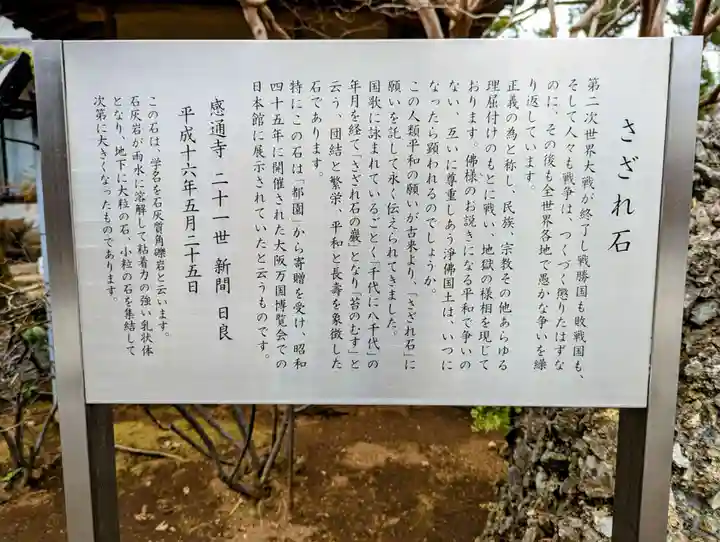 さざれ石
第二次世界大戦が終了し戦勝国も敗戦国も、
そして人々も戦争は、つくづく懲りたはずな
のに、その後も全世界各地で愚かな争いを繰
り返しています。
正義の為と称し、民族、宗教その他あらゆる
理屈付けのもとに戦い、地獄の様相を現じて
おります。佛様のお説きになる平和で争いの
ない、互いに尊重しあう浄佛国土は、いつに
なったら顕われるのでしょうか。
この人類平和の願いが古来より、「さざれ石」に
願いを託して永く伝えられてきました。
国歌に詠まれているごとく「千代に八千代」の
年月を経て「さざれ石の巌」となり「苔のむす」と
云う、団結と繁栄、平和と長壽を象徴した
石であります。
特にこの石は「都園」から寄贈を受け、昭和
四十五年に開催された大阪万国博覧会での
日本館に展示されていたと云うものです。
感通寺 二十一世 新間 日良
平成十六年五月二十五日
この石は、学名を石灰質角礫岩と云います。
石灰岩が雨水に溶解して粘着力の強い乳状体
となり、地下に大粒の石・小粒の石を集結して
次第に大きくなったものであります。